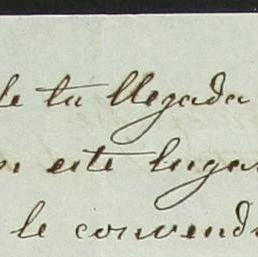 de tu llegada
en este lugar
le convendr